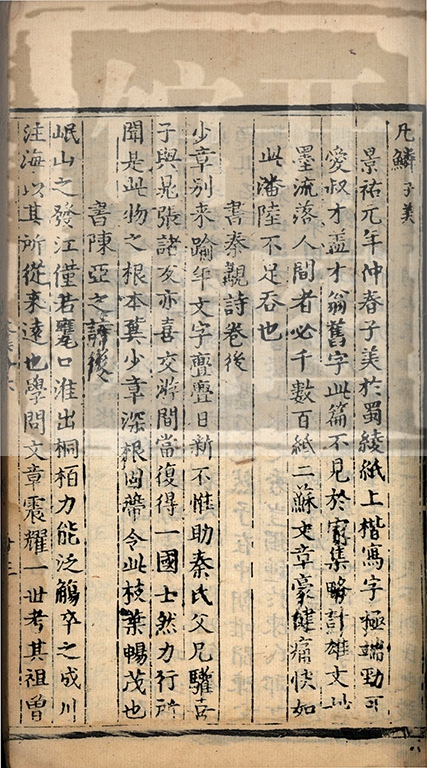 兄鱗子美
景祐元年仲春子美於蜀綾紙上楷寫字極端勁可
愛叔才盖才翁舊字此篇不見於家集略計雄文妙
墨流落人間者必千數百紙二蘇文章豪健痛快如
此潘陸不足吞也
書秦覯詩卷後
少章别来踰年文字亹亹日新不惟助秦氏父兄驩喜
子與晁張諸友亦喜交游間當復得一國士然力行所
聞是此物之根本冀少章深根固蔕令此枝葉暢茂也
書陳亞之詩後
岷山之發江僅若甕口淮出桐栢力能泛觴卒之成川
注海以其所從来遠也學問文章震耀一世考其祖曾